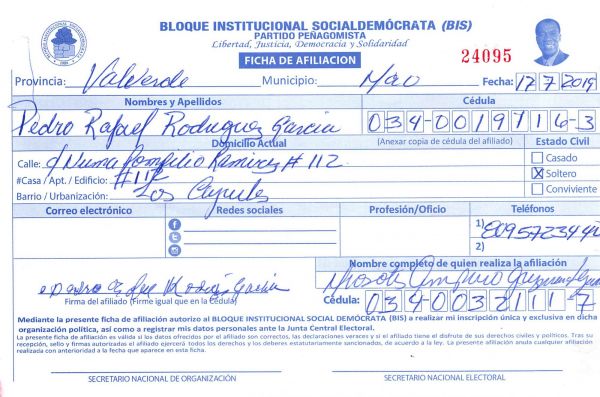 BLOQUE INSTITUCIONAL SOCIALDEMÓCRATA (BIS)
PARTIDO PEÑAGOMISTA
Libertad, Justicia, Democracia y Solidaridad
FICHA DE AFILIACION
24095
Provincia: Valverde Municipio: Mao Fecha: 17 7 2019
Nombres y Apellidos Cédula
Pedro Rafael Rodriguez Garcia 034-0019716-3
Domicilio Actual (Anexar copia de cédula del afiliado) Estado Civil
Calle: Numa Pompilio Ramirez # 112 Casado
#Casa / Apt. / Edificio: #112 X Soltero
Barrio / Urbanización: Los Conviviente
Correo electrónico Redes sociales Profesión/Oficio Teléfonos
1) 809572344
2)
Nombre completo de quien realiza la afiliación
Firma del afiliado (Firme igual que en la Cédula) Cédula: 034-0032111-7
Mediante la presente ficha de afiliación autorizo al BLOQUE INSTITUCIONAL SOCIAL DEMÓCRATA (BIS) a realizar mi inscripción única y exclusiva en dicha
organización política, así como a registrar mis datos personales ante la Junta Central Electoral.
La presente ficha de afiliación es válida si las datos ofrecidos por el afiliado son correctos, las declaraciones veraces y si el afiliado tiene el disfrute de sus derechos civiles y políticos. Tras su
recepción, sello y firmas autorizadas el afiliado ejercerá todos los derechos y los deberes estatutariamente sancionados, de acuerdo a la ley. La presente afiliación anula cualquier afiliación
realizada con anterioridad a la fecha que aparece en esta ficha.
SECRETARIO NACIONAL DE ORGANIZACIÓN SECRETARIO NACIONAL ELECTORAL